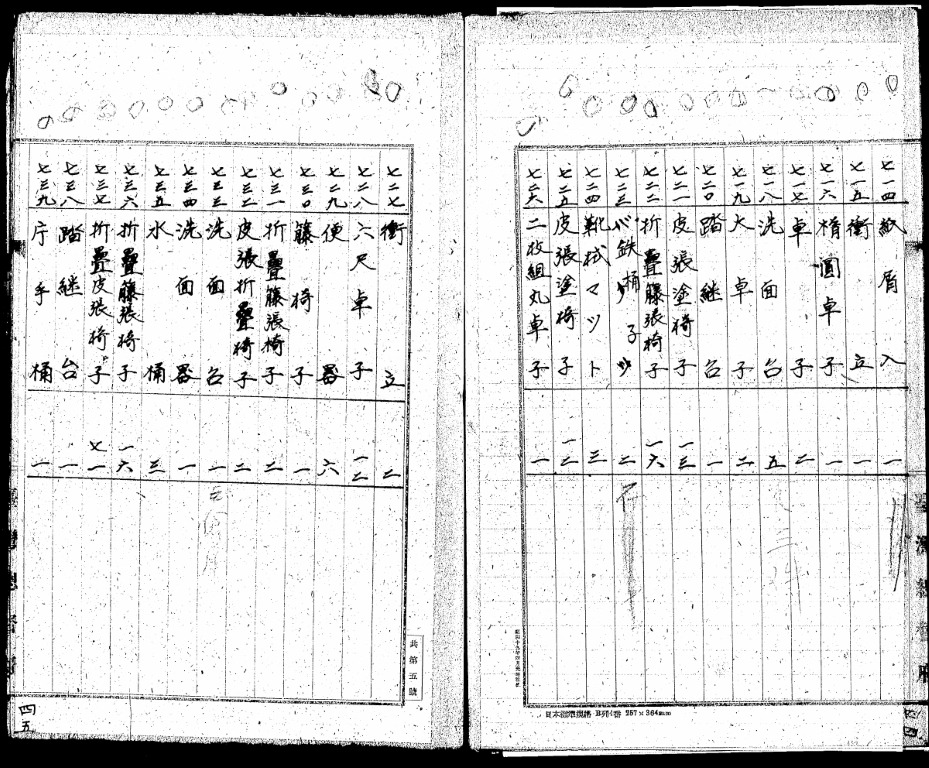 七一四 紙屑入 一
七一五 衝立 一
七一六 楕圓卓子 一
七一七 卓子 二
七一八 洗面台 五
七一九 大卓子 二
七二〇 踏継台 一
七二一 皮張塗椅子 一三
七二二 折疊藤張椅子 一六
七二三 鉄桶子 二
七二四 靴拭マツト 三
七二五 皮張塗椅子 一二
七二六 二枚組丸卓子 一
日本標準規格 B列4番 257×364mm
七二七 衝立 二
七二八 六尺卓子 一二
七二九 便器 六
七三〇 籐椅子 一
七三一 折疊籐張椅子 二
七三二 皮張折疊椅子 二
七三三 洗面台 一
七三四 洗面器 一
七三五 水桶 三
七三六 折疊籐張椅子 一六
七三七 折疊皮張椅子 七一
七三八 踏継台 一
七三九 片手桶 一
共第五號
四五